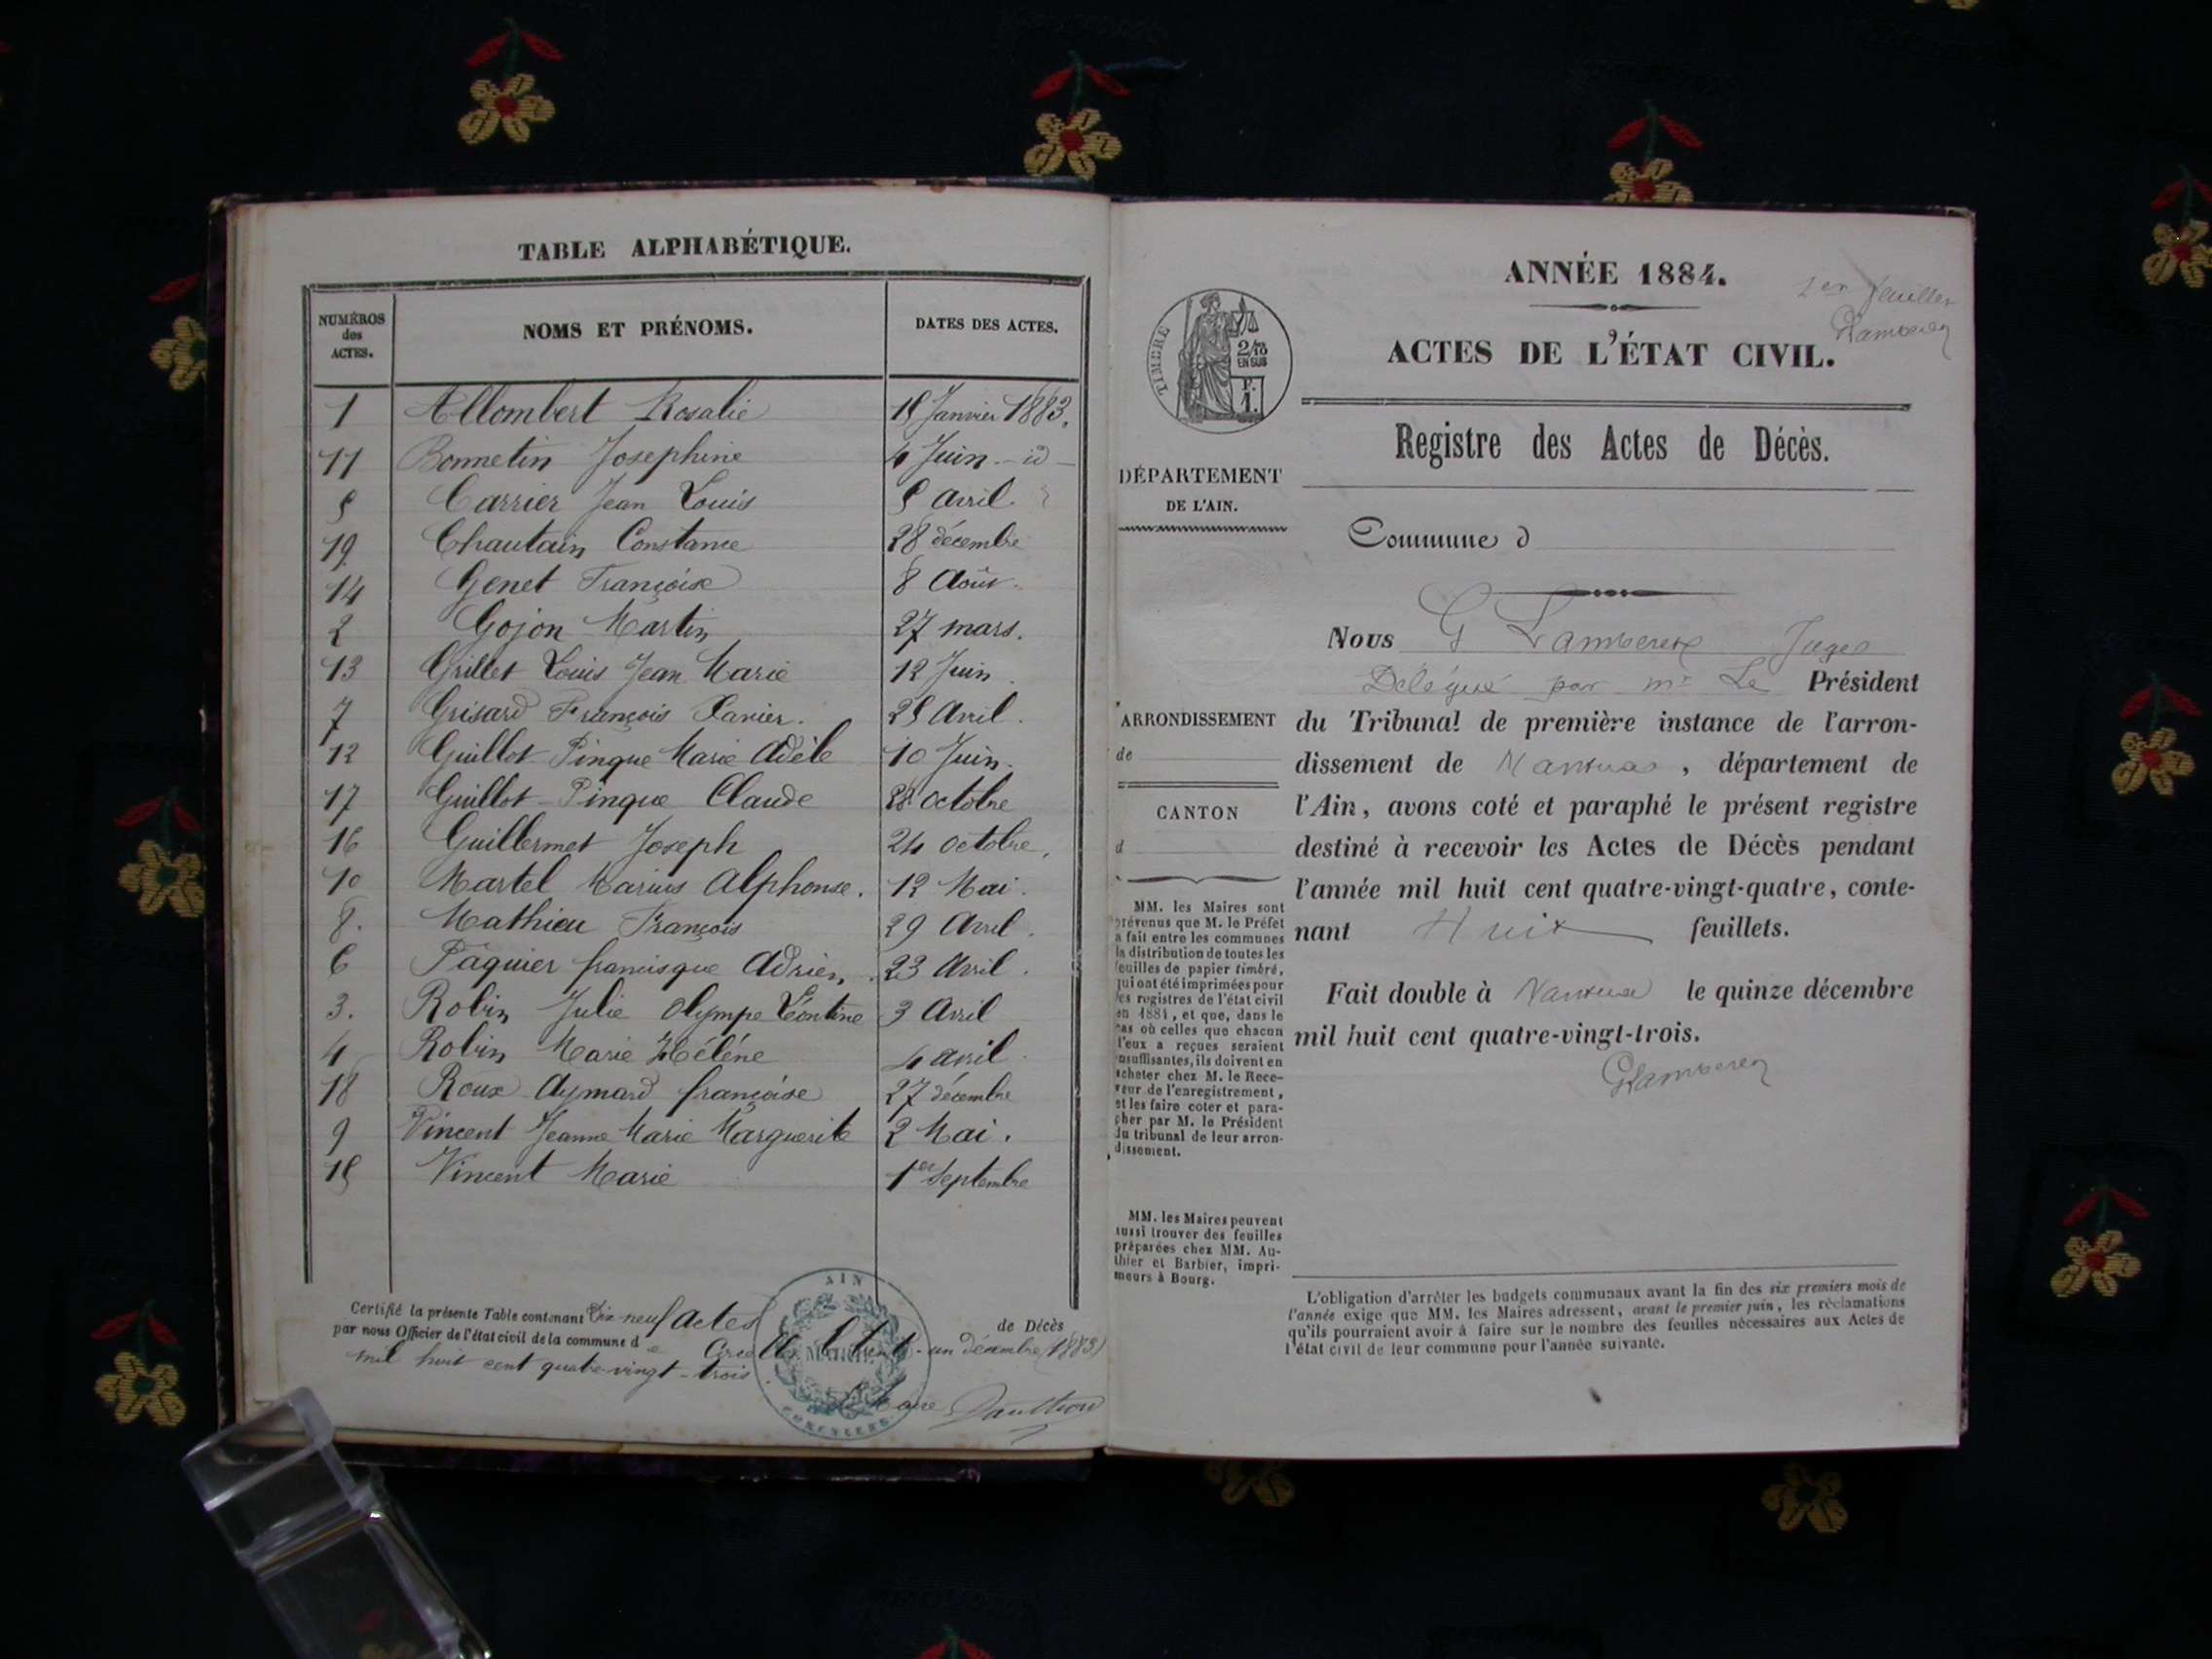 TABLE ALPHABÉTIQUE.
NUMÉROS des ACTES. NOMS ET PRÉNOMS. DATES DES ACTES.
1 Allombert Rosalie 15 Janvier 1883.
11 Bonnetin Josephine 4 Juin - id -
5 Carrier Jean Louis 5 avril
19 Chautain Constance 28 décembre
14 Genet Françoise 8 Août
2 Gojon Martin 27 mars.
13 Grillet Louis Jean Marie 12 Juin
7 Grisard François Xavier. 25 Avril.
12 Guillot Pingue Marie Adèle 10 Juin.
17 Guillot-Pingue Claude 28 octobre
16 Guillermet Joseph 24 octobre,
10 Martel Marius Alphonse. 12 Mai.
8. Mathieu François 29 Avril.
6 Pâquier francisque Adrien, 23 Avril.
3. Robin Julie Olympe Léontine 3 Avril
4 Robin Marie Hélène 4 avril
18 Roux Aymard françoise 27 décembre
9 Vincent Jeanne Marie Marguerite 2 Mai.
15 Vincent Marie 1er Septembre
Certifié la présente Table contenant Dix-neuf actes de Décès
par nous Officier de l'état civil de la commune d un décembre (1883)
mil huit cent quatre-vingt-trois.
AIN
MAIRIE
Maire
ANNÉE 1884.
1er feuillet
ACTES DE L'ÉTAT CIVIL.
TIMBRE
2/10 EN SUS
F. 1.
Registre des Actes de Décès.
DÉPARTEMENT
DE L'AIN.
Commune d
Nous G Lambereux Juge
Délégué par mr Le Président
ARRONDISSEMENT
de
CANTON
d
du Tribunal de première instance de l'arron-
dissement de Nantua, département de
l'Ain, avons coté et paraphé le présent registre
destiné à recevoir les Actes de Décès pendant
l'année mil huit cent quatre-vingt-quatre, conte-
nant Huit feuillets.
Fait double à Nantua le quinze décembre
mil huit cent quatre-vingt-trois.
MM. les Maires sont
prévenus que M. le Préfet
a fait entre les communes
la distribution de toutes les
feuilles de papier timbré,
qui ont été imprimées pour
les registres de l'état civil
en 1884, et que, dans le
cas où celles que chacun
d'eux a reçues seraient
insuffisantes, ils doivent en
acheter chez M. le Rece-
veur de l'enregistrement,
et les faire coter et para-
pher par M. le Président
du tribunal de leur arron-
dissement.
MM. les Maires peuvent
aussi trouver des feuilles
préparées chez MM. Au-
thier et Barbier, impri-
meurs à Bourg.
L'obligation d'arrêter les budgets communaux avant la fin des six premiers mois de
l'année exige que MM. les Maires adressent, avant le premier juin, les réclamations
qu'ils pourraient avoir à faire sur le nombre des feuilles nécessaires aux Actes de
l'état civil de leur commune pour l'année suivante.